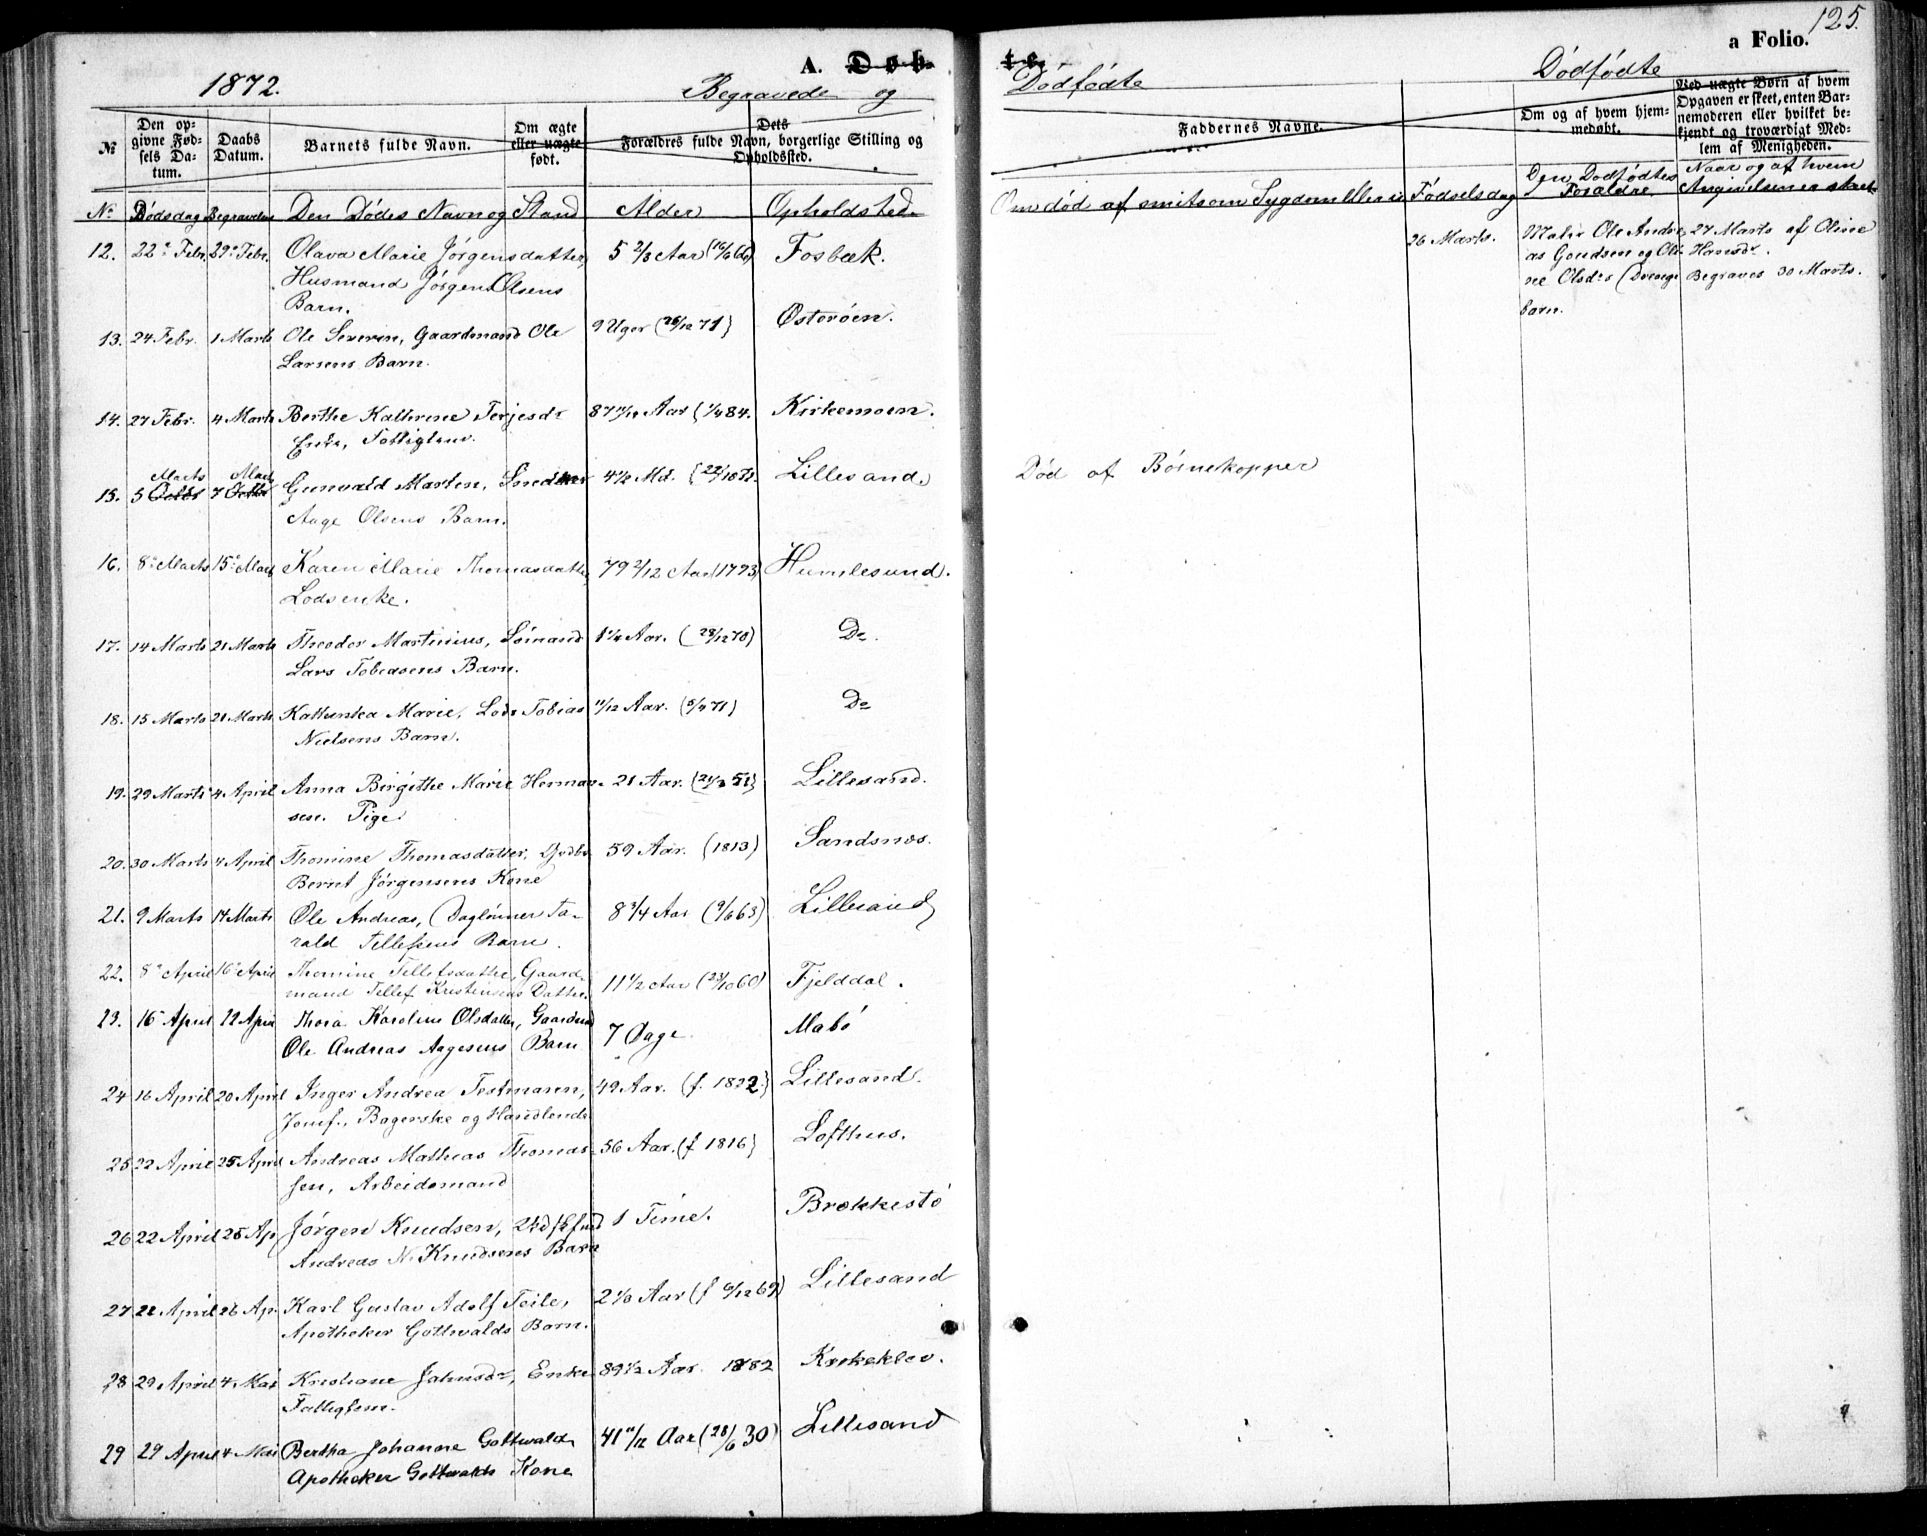 125.
A. Døb
te.
a Folio.
1872.
Begravede og
Dödfødte
Dödfødte
№
Den op-
givne Fød-
sels Da-
tum.
Daabs
Datum.
Barnets fulde Navn.
Om ægte
eller uægte
født.
Dets
Forældres fulde Navn, borgerlige Stilling og
Opholdssted.
Faddernes Navne.
Om og af hvem hjem-
medøbt.
Ved uægte Børn af hvem
Opgaven er skeet, enten Bar-
nemoderen eller hvilket be-
kjendt og troværdigt Med-
lem af Menigheden.
№ Dödsdag Begravelses Den Dödes Navn og Stand Alder Opholdsted.
Om död af smitsom Sygdom Fødselsdag Den Dødfødtes Forældre Naar og af hvem Angivelsen er skeet
12. 22de Febr. 29de Febr. Olava Marie Jörgensdatter, 5 2/3 Aar (16/6 66) Fosbæk.
Husmand Jörgen Olsens
Barn.
26 Marts. Ole Andre-
as Gundsen og Oli-
ne Olsdr (Drenge-
barn.
27 Marts af Oline
Hansdr.
Begraves 30 Marts.
13. 24 Febr. 1 Marts Ole Severin, Gaardmand Ole 9 Uger (26/12 71) Østeröen.
Larsens Barn.
14. 27 Febr. 4 Marts Berthe Kathrine Terjesdr 87 11/12 Aar (1/4 84. Kirkemoen.
Enke, Fattiglem.
15. 5 Marts 7 Marts Gunvald Martin, Snedker 4 1/2 Md. (22/10 71. Lillesand.
Aage Olsens Barn.
Död af Børnekopper
16. 8de Marts 15de Marts Karen Marie Thomasdatter, 79 2/12 Aar (1793) Humlesund.
Lodsenke.
17. 14 Marts 21 Marts Theodor Martinius, Sömand 1 1/4 Aar. (28/12 70) Do.
Lars Tobiasens Barn.
18. 15 Marts 21 Marts Kathinka Marie, Lods Tobias 11/12 Aar. (5/4 71) Do
Nielsens Barn.
19. 29 Marts 4 April Anna Birgithe Marie Herman- 21 Aar. (21/3 51) Lillesand.
sen. Pige
20. 30 Marts 4 April Thomine Thomasdatter, 59 Aar. (1813) Sandsnæs.
Bernt Jörgensens Kone
21. 9 Marts 14 Marts Ole Andreas, Daglönner Ta- 8 3/4 Aar (9/6 63) Lillesand
rald Tellefsens Barn.
22. 8de April 16de April Thomine Tellefsdatter, Gaard- 11 1/2 Aar (23/10 60) Fjelddal.
mand Tellef Kristensens Datter.
23. 16 April 22 April Thora Karoline Olsdatter, Gaardmd 7 Dage. Mabö
Ole Andreas Aagesens Barn
24 16 April 20 April Inger Andrea Testmann, 49 Aar. (f. 1822.) Lillesand.
Jomf., Bagerske og Handlende
25 22 April 25 April Andreas Mathias Thomas- 56 Aar. (f 1816) Lofthus.
sen, Arbeidsmand
26 22 April 25 Ap. Jörgen Knudsen, 1 Time. Brækkestö
Andreas N. Knudsens Barn
27 22 April 26 Ap. Karl Gustav Adolf Teile, 2 1/6 Aar (f 6/12 69) Lillesand
Apotheker Gottwalds Barn.
28 29 April 4 Mai Kristiane Jahnsdr, Enke 89 1/2 Aar 1882 Kirkeklev.
Fattiglem.
29 29 April 4 Mai Bertha Johanne Gottwaldt 41 11/12 Aar (28/6 30) Lillesand
Apotheker Gottwaldts Kone